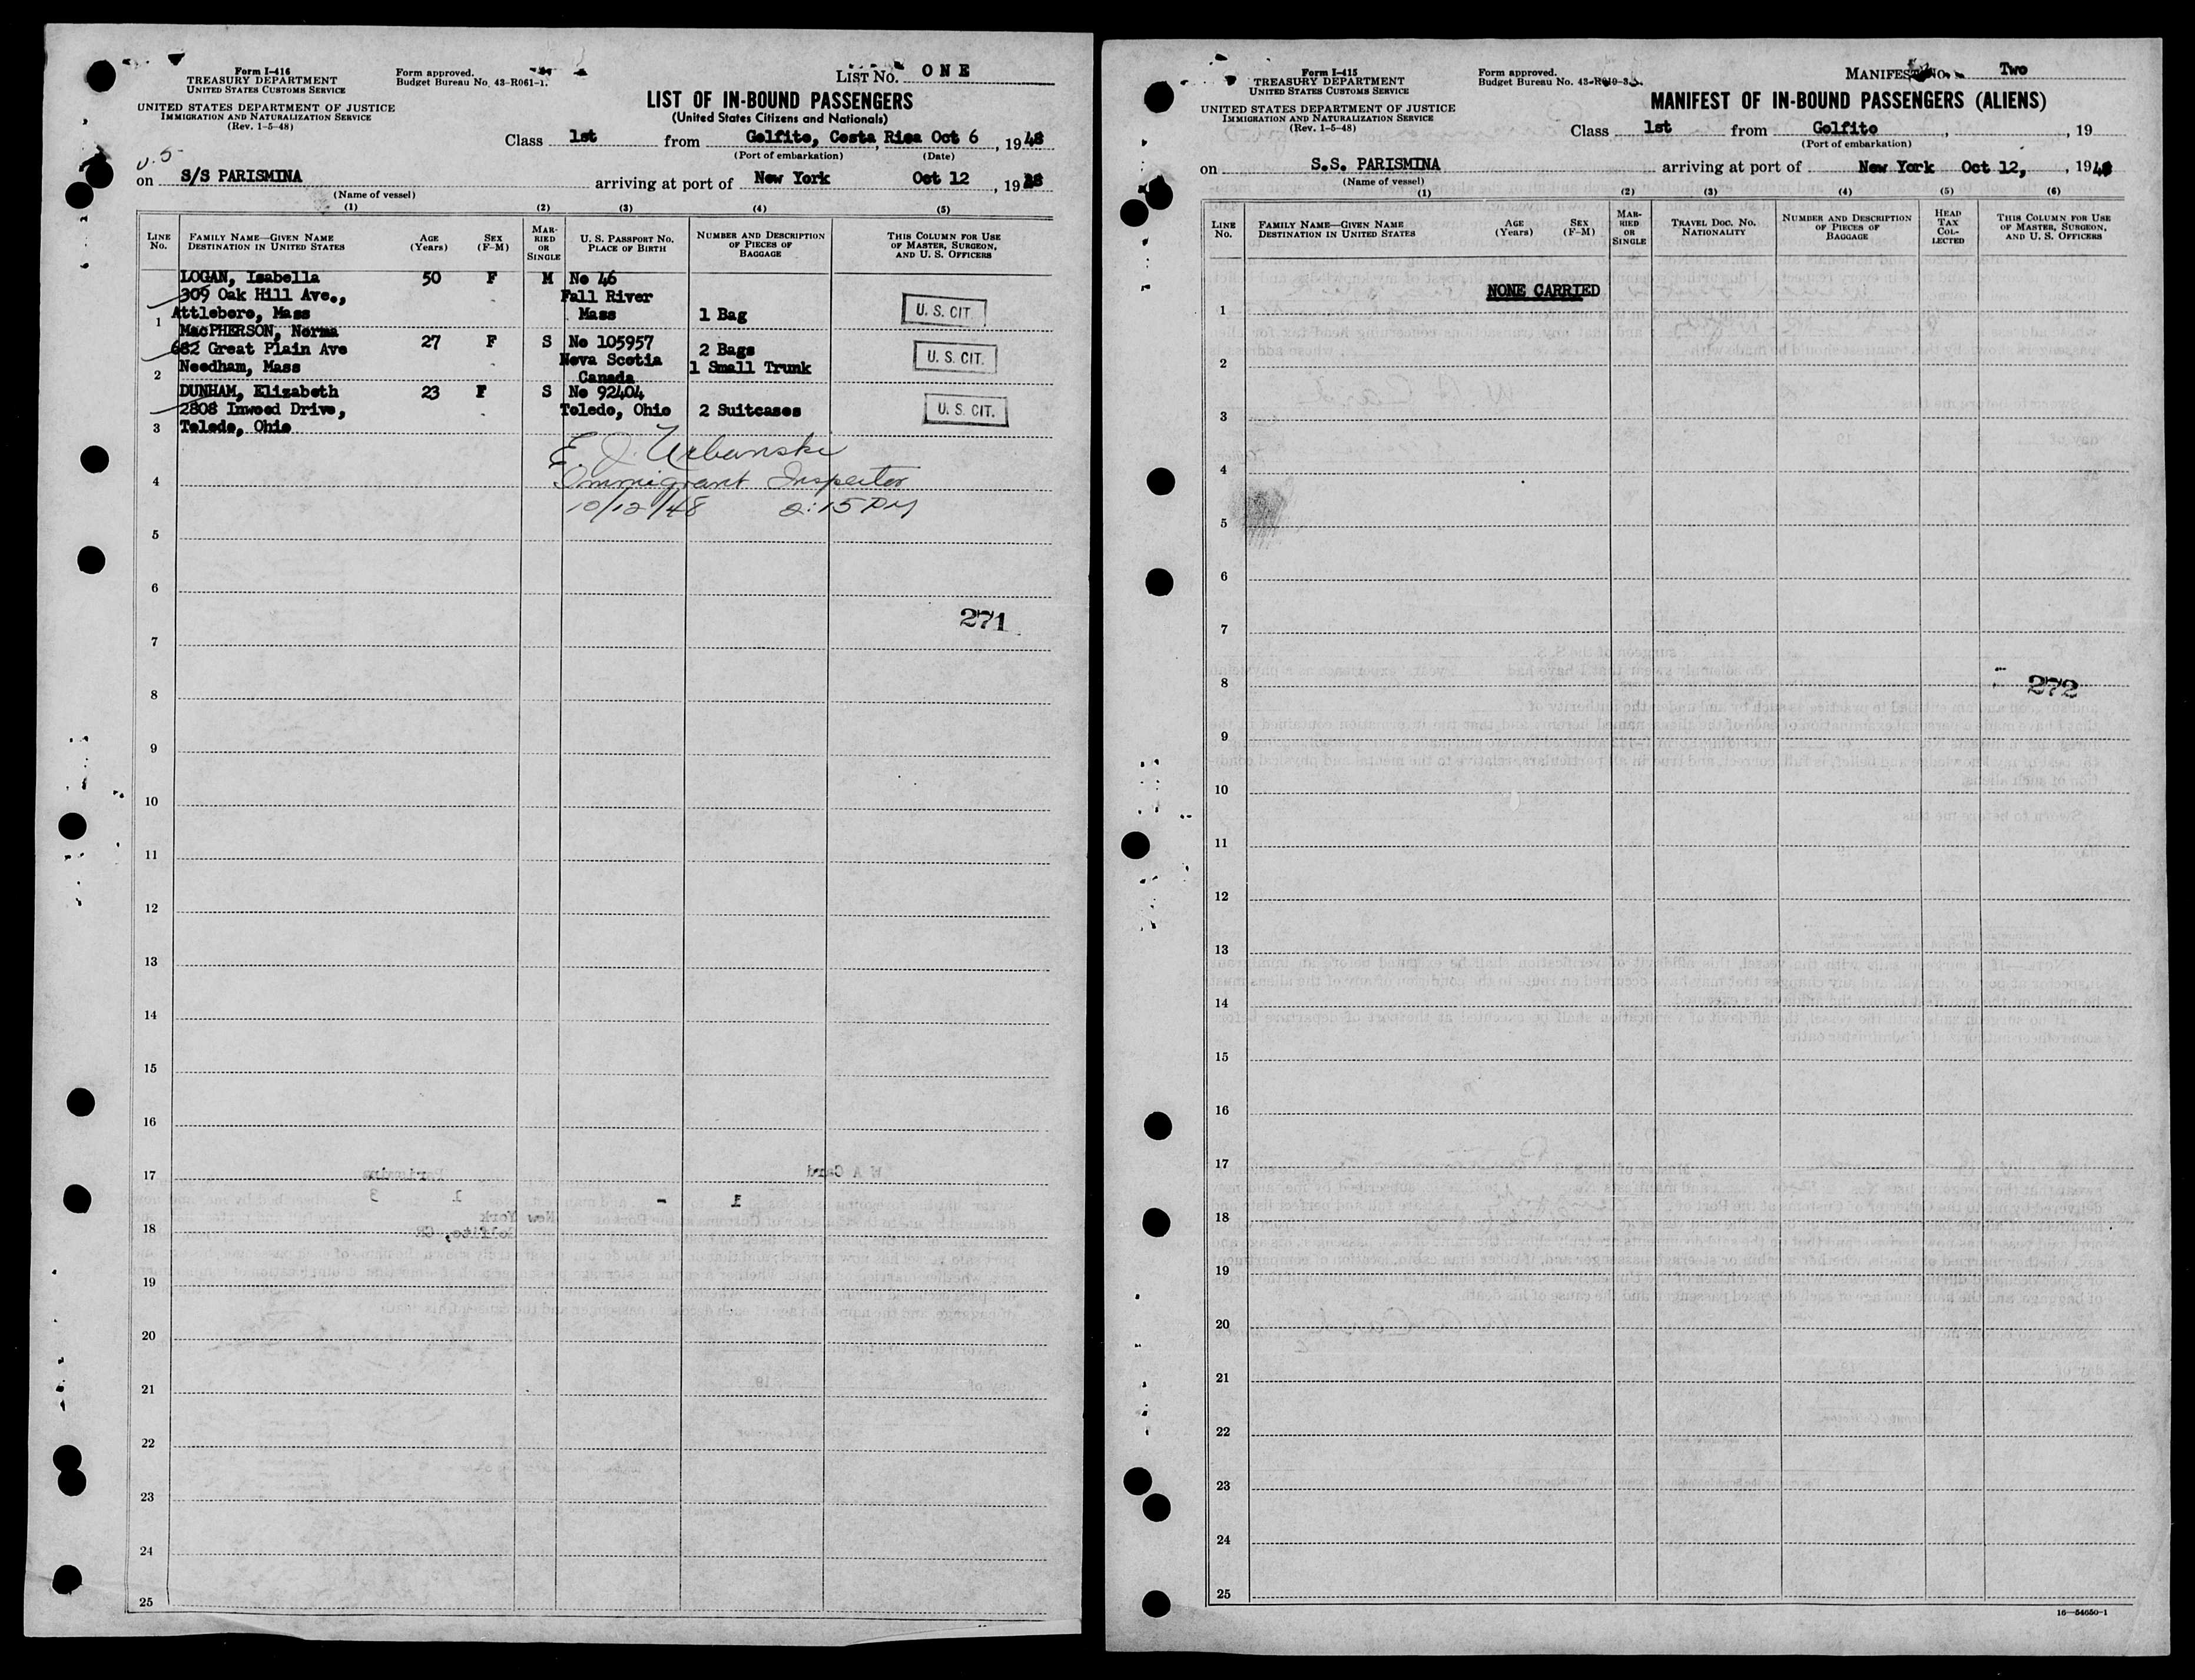 Form I-416
TREASURY DEPARTMENT
UNITED STATES CUSTOMS SERVICE
UNITED STATES DEPARTMENT OF JUSTICE
IMMIGRATION AND NATURALIZATION SERVICE
(Rev. 1-5-48)
Form approved.
Budget Bureau No. 43-R061-1.
LIST NO. ONE
LIST OF IN-BOUND PASSENGERS
(United States Citizens and Nationals)
Class 1st from Golfito, Costa Rica Oct 6, 1948
(Port of embarkation) (Date)
on S/S PARISMINA arriving at port of New York Oct 12, 1948
(Name of vessel)
(1) (2) (3) (4) (5)
LINE No. FAMILY NAME—GIVEN NAME DESTINATION IN UNITED STATES AGE (Years) SEX (F-M) MARRIED OR SINGLE U. S. PASSPORT NO. PLACE OF BIRTH NUMBER AND DESCRIPTION OF PIECES OF BAGGAGE THIS COLUMN FOR USE OF MASTER, SURGEON, AND U. S. OFFICERS
LOGAN, Isabella 50 F M No 46
309 Oak Hill Ave., Fall River
1 Attleboro, Mass Mass 1 Bag U. S. CIT.
MacPHERSON, Norma 27 F S No 105957
682 Great Plain Ave Nova Scotia 2 Bags U. S. CIT.
2 Needham, Mass Canada 1 Small Trunk
DUNHAM, Elizabeth 23 F S No 92404
2808 Inwood Drive, Toledo, Ohio 2 Suitcases U. S. CIT.
3 Toledo, Ohio
E. J. Urbanski
4 Immigrant Inspector
10/12/48 2:15 PM
5
6
271
7
8
9
10
11
12
13
14
15
16
17
18
19
20
21
22
23
24
25
Form I-415
TREASURY DEPARTMENT
UNITED STATES CUSTOMS SERVICE
UNITED STATES DEPARTMENT OF JUSTICE
IMMIGRATION AND NATURALIZATION SERVICE
(Rev. 1-5-48)
Form approved.
MANIFEST NO. Two
MANIFEST OF IN-BOUND PASSENGERS (ALIENS)
Class 1st from Golfito, , 19
(Port of embarkation)
on S.S. PARISMINA arriving at port of New York Oct 12, , 1948
(Name of vessel)
(1) (2) (3) (4) (5) (6)
LINE No. FAMILY NAME—GIVEN NAME DESTINATION IN UNITED STATES AGE (Years) SEX (F-M) MARRIED OR SINGLE TRAVEL DOC. NO. NATIONALITY NUMBER AND DESCRIPTION OF PIECES OF BAGGAGE HEAD TAX COLLECTED THIS COLUMN FOR USE OF MASTER, SURGEON, AND U. S. OFFICERS
NONE CARRIED
1
2
3
4
5
6
7
8 272
9
10
11
12
13
14
15
16
17
18
19
20
21
22
23
24
25
16—54650-1